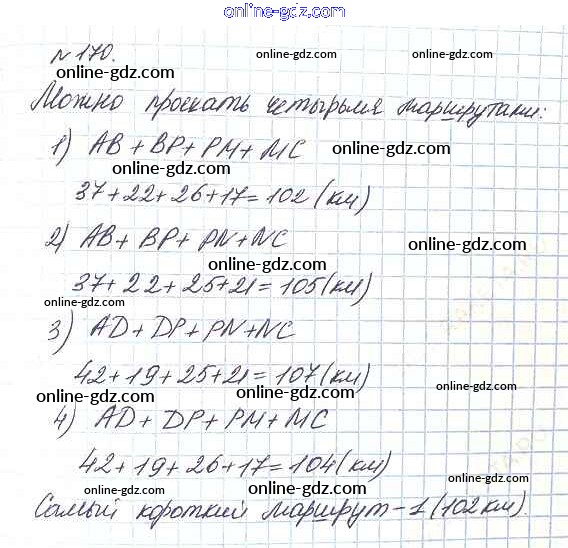 online-gdz.com
№ 170. online-gdz.com online-gdz.com
online-gdz.com
Можно проехать четырьмя маршрутами:
online-gdz.com
1) AB + BP + PM + MC online-gdz.com
online-gdz.com
37 + 22 + 26 + 17 = 102 (км)
2) AB + BP + PN + NC online-gdz.com
online-gdz.com
37 + 22 + 25 + 21 = 105 (км)
online-gdz.com
3) AD + DP + PN + NC online-gdz.com
42 + 19 + 25 + 21 = 107 (км)
online-gdz.com online-gdz.com online-gdz.com
4) AD + DP + PM + MC
online-gdz.com
42 + 19 + 26 + 17 = 104 (км)
online-gdz.com online-gdz.com online-gdz.com
Самый короткий маршрут - 1 (102 км).
online-gdz.com